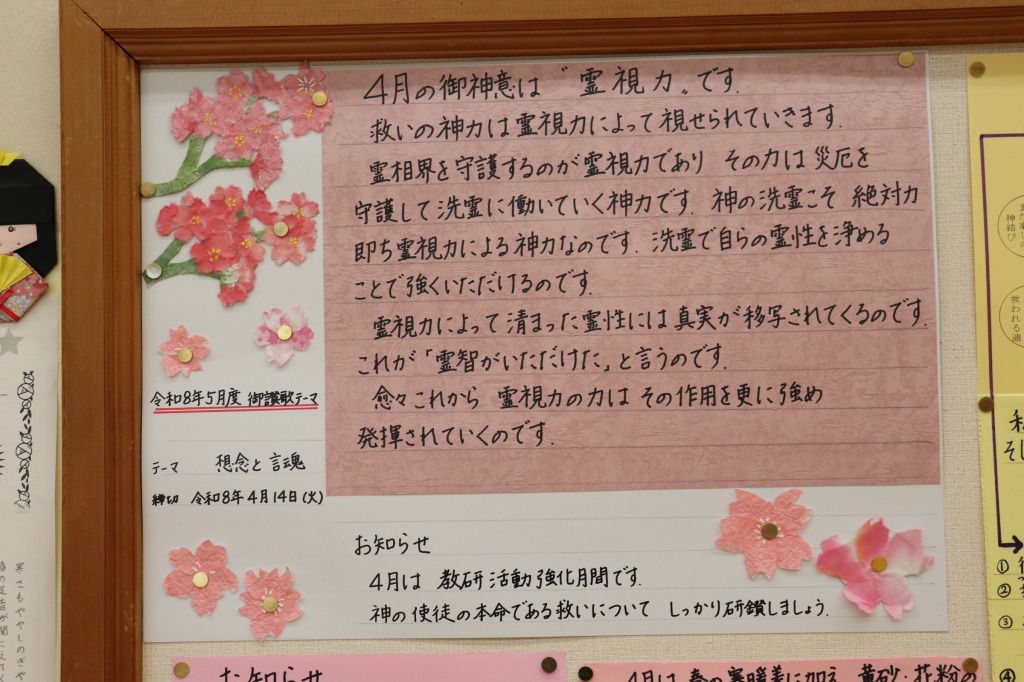 4月の御神意は〝霊視力〟です.
救いの神力は霊視力によって視せられていきます.
霊相界を守護するのが霊視力であり その力は災厄を
守護して洗霊に働いていく神力です. 神の洗霊こそ 絶対力
即ち霊視力による神力なのです. 洗霊で自らの霊性を浄める
ことで強くいただけるのです.
霊視力によって清まった霊性には真実が移写されてくるのです.
これが「霊智がいただけた」と言うのです.
愈々これから 霊視力の力は その作用を更に強め
発揮されていくのです.
令和8年5月度 御讃歌テーマ
テーマ 想念と言魂
締切 令和8年4月14日(火)
お知らせ
4月は 教研活動強化月間です.
神の使徒の本命である救いについて しっかり研鑽しましょう.
お知らせ
4月は 春の寒暖差に加え 黄砂・花粉の
神結び
救われる道
①
②
③
④